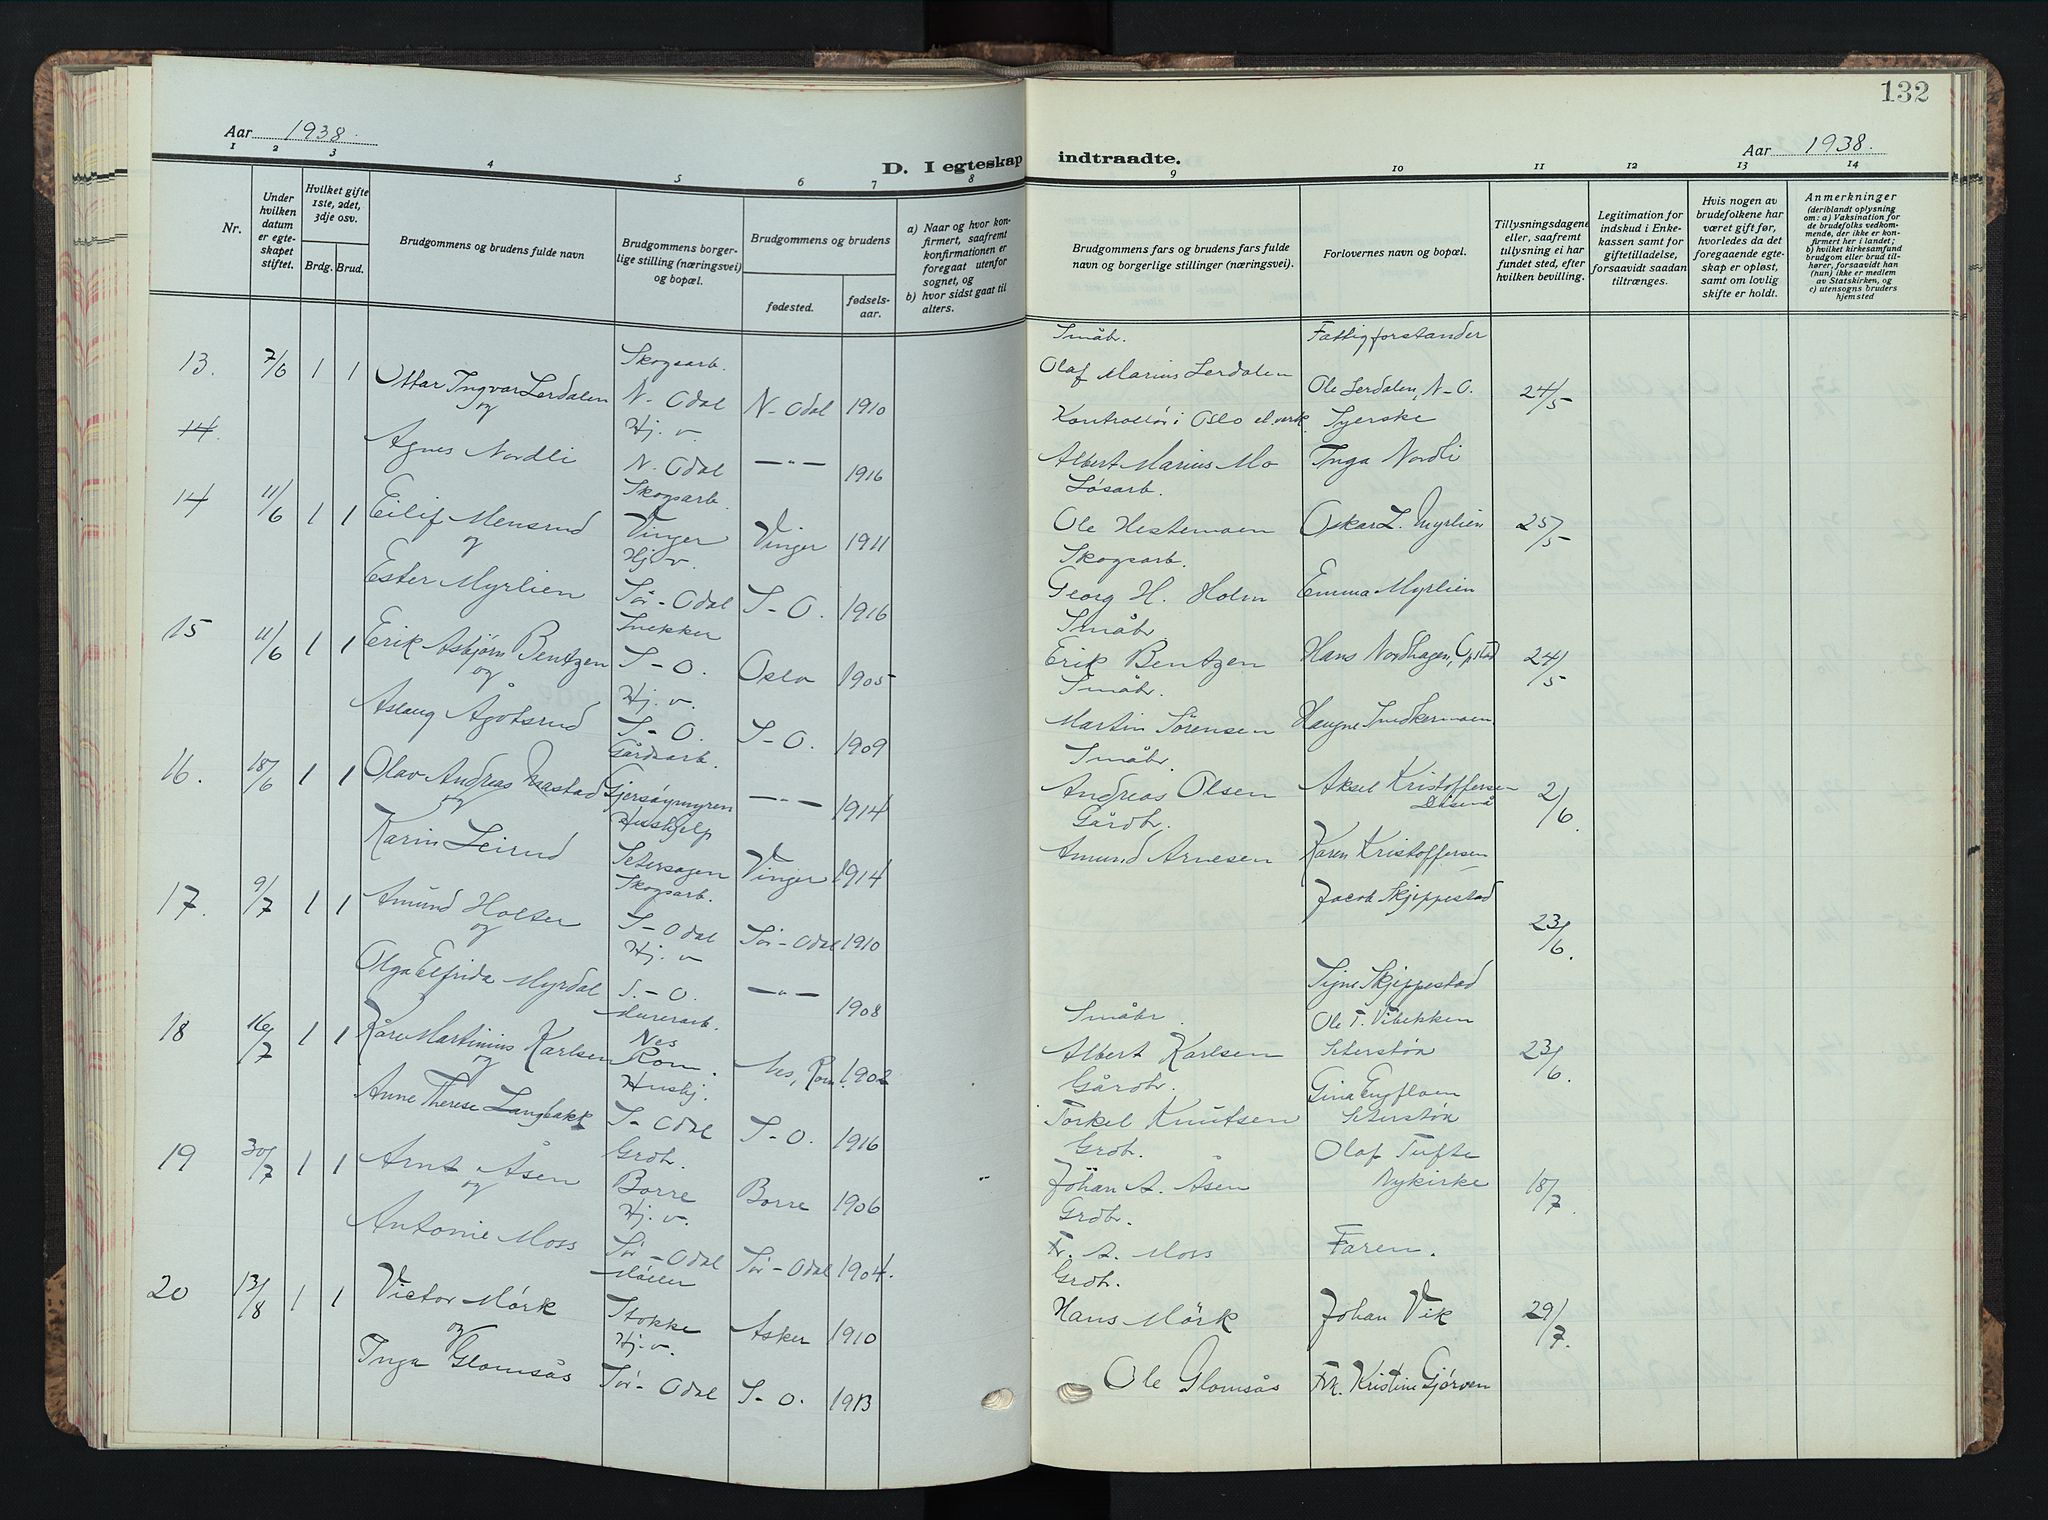 132
Aar 1938.
D. I egteskap indtraadte.
Aar 1938.
1 2 3 4 5 6 7 8 9 10 11 12 13 14
Nr.
Under hvilken datum er egteskapet stiftet.
Hvilket gifte 1ste, 2det, 3dje osv.
Brdg. Brud.
Brudgommens og brudens fulde navn
Brudgommens borgerlige stilling (næringsvei) og bopæl.
Brudgommens og brudens
fødested.
fødselsaar.
a) Naar og hvor konfirmert, saafremt konfirmationen er foregaat utenfor sognet, og
b) hvor sidst gaat til alters.
Brudgommens fars og brudens fars fulde navn og borgerlige stillinger (næringsvei).
Forlovernes navn og bopæl.
Tillysningsdagene eller, saafremt tillysning ei har fundet sted, efter hvilken bevilling.
Legitimation for indskud i Enkekassen samt for giftetilladelse, forsaavidt saadan tiltrænges.
Hvis nogen av brudefolkene har været gift før, hvorledes da det foregaaende egteskap er opløst, samt om lovlig skifte er holdt.
Anmerkninger (deriblandt oplysning om: a) Vaksination for de brudefolks vedkommende, der ikke er konfirmert her i landet; b) hvilket kirkesamfund brudgom eller brud tilhører, forsaavidt han (hun) ikke er medlem av Statskirken, og c) utensogns bruders hjemsted
Skogsarb. Småbr. Fattigforstander
13. 7/6 1 1 Ottar Ingvar Lerdalen N-Odal N-Odal 1910 Olaf Marius Lerdalen Ole Lerdalen, N-O. 24/5
og Hj. v. Kontrollør i Oslo el.verk. Syerske
14. Agnes Nordli N. Odal —"— 1916 Albert Marius Mo Inga Nordli
Skogsarb. Løsarb.
14 11/6 1 1 Eilif Mensrud Vinger Vinger 1911 Ole Hestemoen Oskar L. Myrlien 25/5
og Hj. v. Skogsarb.
Ester Myrlien Sør-Odal S-O. 1916 Georg H. Holm Emma Myrlien
Snekker Småbr.
15 11/6 1 1 Erik Asbjørn Bentzen S-O. Oslo 1905 Erik Bentzen Hans Nordhagen, Opstad 24/5
og Hj. v. Småbr.
Aslaug Ågotsrud S-O. S-O. 1909 Martin Sørensen Haugne Snekkermoen
Gårdsarb. Småbr.
16. 18/6 1 1 Olav Andreas Mastad Gjersøymyren —"— 1914 Andreas Olsen Aksel Kristoffersen 2/6.
og Hushjelp Gårdbr.
Karin Leirud Setersagen Vinger 1914 Amund Arnesen Karen Kristoffersen
Skogsarb. Jacob Skjeppestad
17. 9/7 1 1 Amund Holter S-Odal Sør-Odal 1910 23/6.
og Hj. v
Olga Elfrida Myrdal S.-O. —"— 1908 Signe Skjeppestad
Murerarb. Småbr. Ole T. Vibekken
18 16/7 1 1 Kåre Martinius Karlsen Nes Rom. Nes, Rom. 1902 Albert Karlsen Seterstøa 23/6.
og Hushj. Gårdbr. Gina Engfloen
Anne Therese Langbakk S-Odal S-O. 1916 Torkel Knutsen Seterstøa
Grdbr. Grdbr. Olaf Tufte
19 30/7 1 1 Arnt Åsen Borre Borre 1906 Johan A. Åsen Nykirke 18/7.
og Hj. v. Grdbr.
Antonie Moss Sør-Odal Sør-Odal 1904. Fr. A. Moss Faren.
Møller Grdbr.
20 13/8 1 1 Victor Mørk Stokke Asker 1910 Hans Mørk Johan Vik 29/7.
og Hj. v.
Inga Glomsås Sør-Odal S-O. 1913 Ole Glomsås Frk. Kristine Gjørven